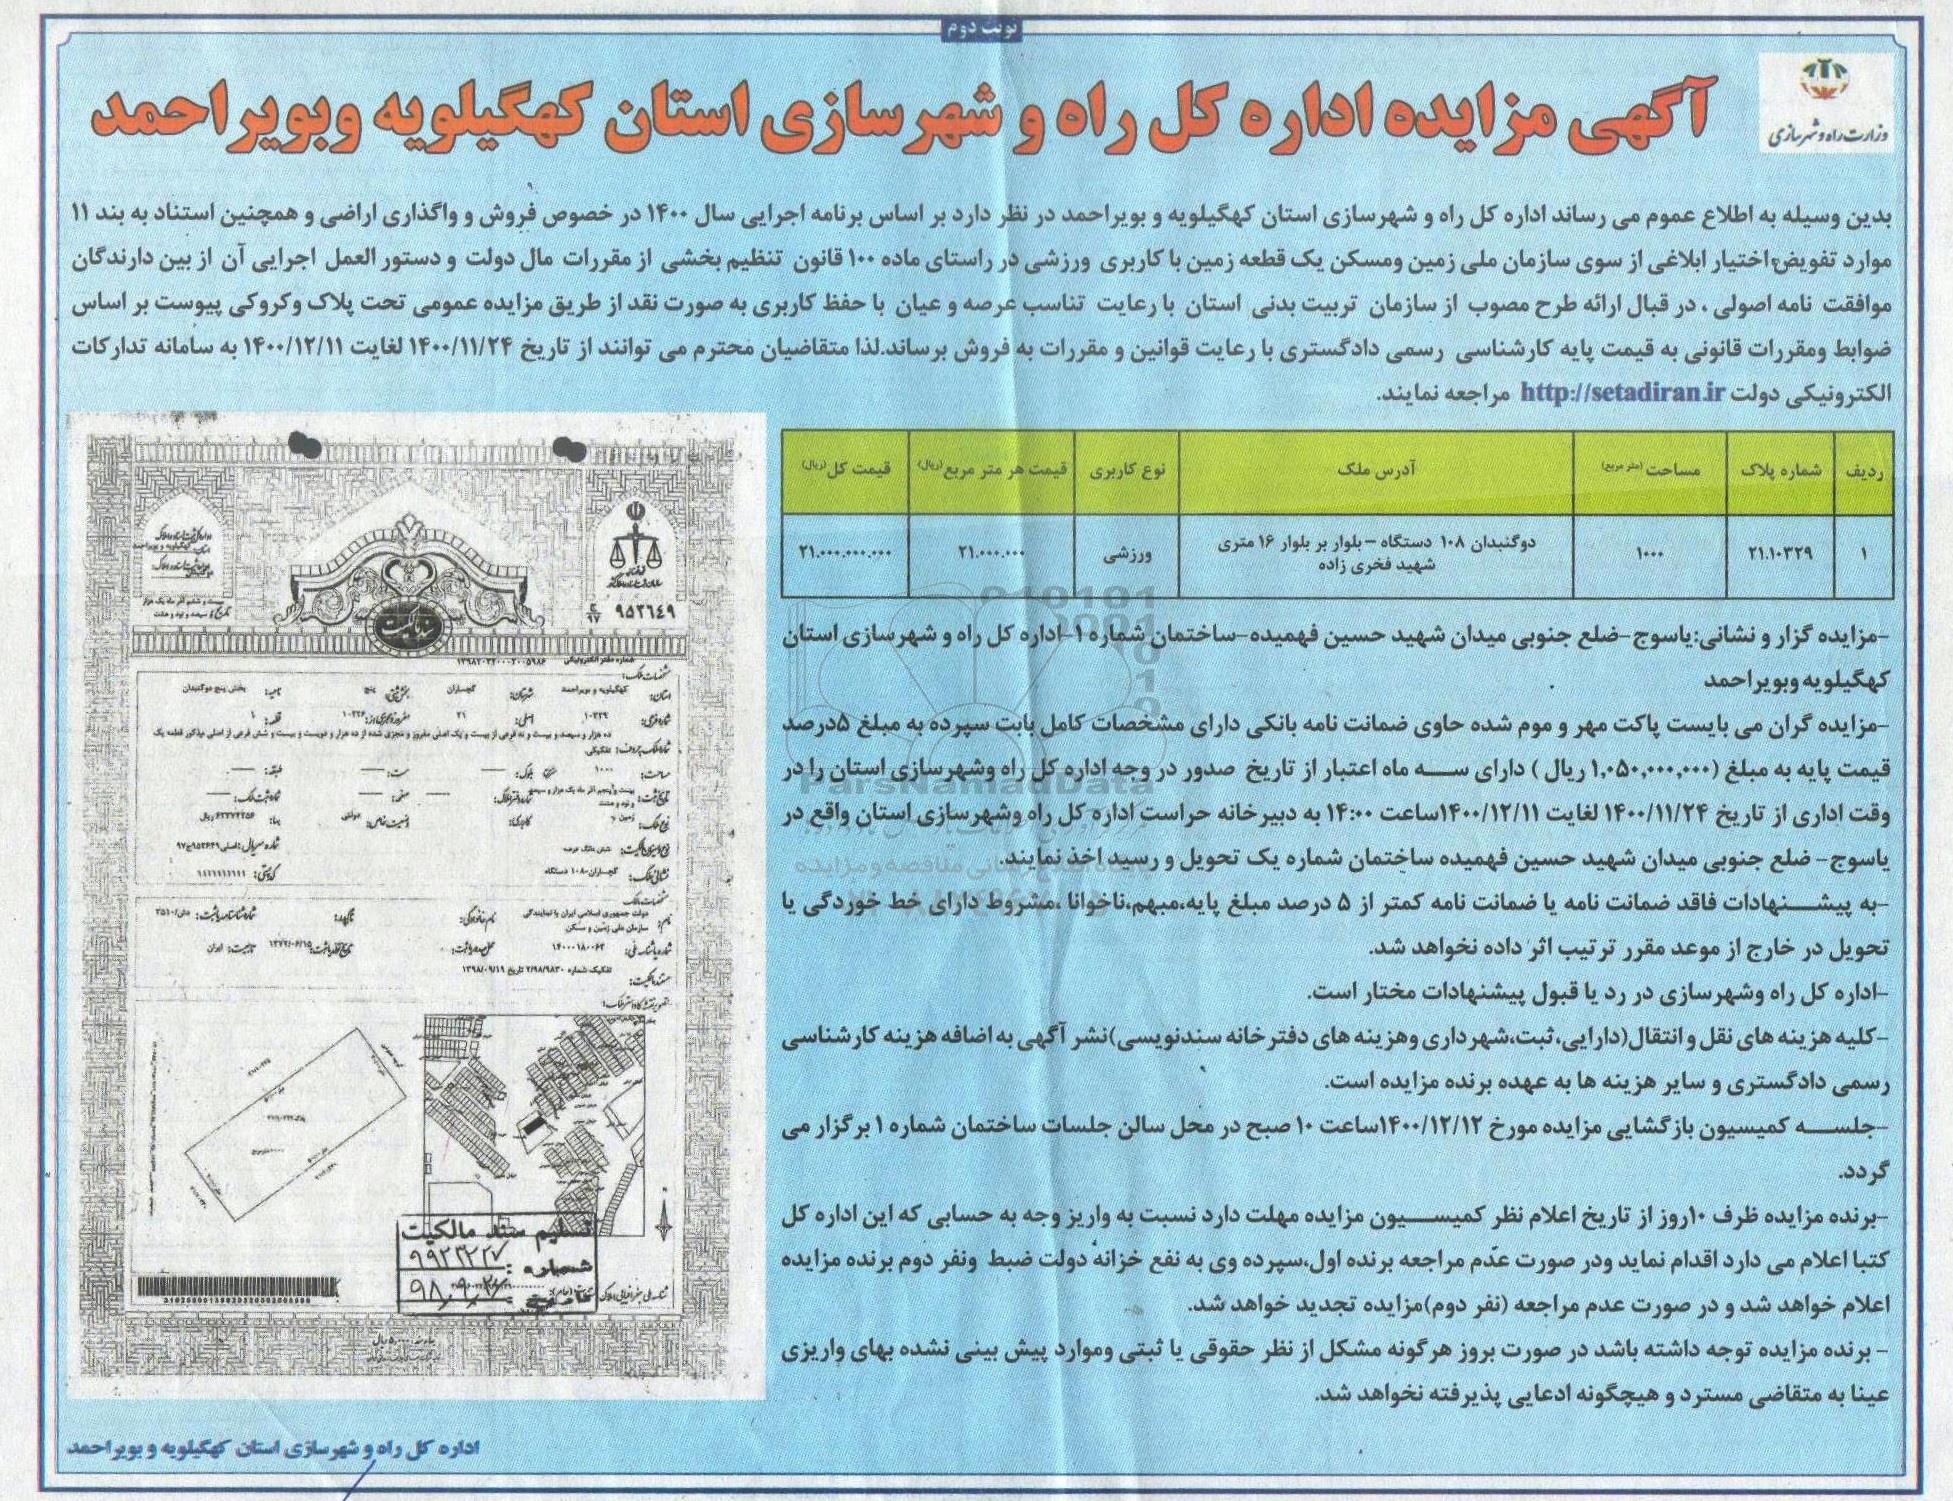 نوبت دوم
آگهی مزایده اداره کل راه و شهرسازی استان کهگیلویه وبویراحمد
وزارت راه و شهرسازی
بدین وسیله به اطلاع عموم می رساند اداره کل راه و شهرسازی استان کهگیلویه و بویراحمد در نظر دارد بر اساس برنامه اجرایی سال ۱۴۰۰ در خصوص فروش و واگذاری اراضی و همچنین استناد به بند ۱۱
موارد تفویض اختیار ابلاغی از سوی سازمان ملی زمین ومسکن یک قطعه زمین با کاربری ورزشی در راستای ماده ۱۰۰ قانون تنظیم بخشی از مقررات مال دولت و دستور العمل اجرایی آن از بین دارندگان
موافقت نامه اصولی ، در قبال ارائه طرح مصوب از سازمان تربیت بدنی استان با رعایت تناسب عرصه و عیان با حفظ کاربری به صورت نقد از طریق مزایده عمومی تحت پلاک وکروکی پیوست بر اساس
ضوابط ومقررات قانونی به قیمت پایه کارشناسی رسمی دادگستری با رعایت قوانین و مقررات به فروش برساند.لذا متقاضیان محترم می توانند از تاریخ ۱۴۰۰/۱۱/۲۴ لغایت ۱۴۰۰/۱۲/۱۱ به سامانه تدارکات
الکترونیکی دولت http://setadiran.ir مراجعه نمایند.
ردیف شماره پلاک مساحت (متر مربع) آدرس ملک نوع کاربری قیمت هر متر مربع (ریال) قیمت کل (ریال)
۱ ۲۱.۱۰۳۲۹ ۱۰۰۰ دوگنبدان ۱۰۸ دستگاه – بلوار بر بلوار ۱۶ متری ورزشی ۲۱.۰۰۰.۰۰۰ ۲۱.۰۰۰.۰۰۰.۰۰۰
شهید فخری زاده
-مزایده گزار و نشانی:یاسوج-ضلع جنوبی میدان شهید حسین فهمیده-ساختمان شماره ۱-اداره کل راه و شهرسازی استان
کهگیلویه وبویراحمد
-مزایده گران می بایست پاکت مهر و موم شده حاوی ضمانت نامه بانکی دارای مشخصات کامل بابت سپرده به مبلغ ۵درصد
قیمت پایه به مبلغ (۱,۰۵۰,۰۰۰,۰۰۰ ریال ) دارای سه ماه اعتبار از تاریخ صدور در وجه اداره کل راه وشهرسازی استان را در
وقت اداری از تاریخ ۱۴۰۰/۱۱/۲۴ لغایت ۱۴۰۰/۱۲/۱۱ساعت ۱۴:۰۰ به دبیرخانه حراست اداره کل راه وشهرسازی استان واقع در
یاسوج- ضلع جنوبی میدان شهید حسین فهمیده ساختمان شماره یک تحویل و رسید اخذ نمایند.
-به پیشنهادات فاقد ضمانت نامه یا ضمانت نامه کمتر از ۵ درصد مبلغ پایه،مبهم،ناخوانا ،مشروط دارای خط خوردگی یا
تحویل در خارج از موعد مقرر ترتیب اثر داده نخواهد شد.
-اداره کل راه وشهرسازی در رد یا قبول پیشنهادات مختار است.
-کلیه هزینه های نقل و انتقال(دارایی،ثبت،شهرداری وهزینه های دفترخانه سندنویسی)نشر آگهی به اضافه هزینه کارشناسی
رسمی دادگستری و سایر هزینه ها به عهده برنده مزایده است.
-جلسه کمیسیون بازگشایی مزایده مورخ ۱۴۰۰/۱۲/۱۲ساعت ۱۰ صبح در محل سالن جلسات ساختمان شماره ۱ برگزار می
گردد.
-برنده مزایده ظرف ۱۰روز از تاریخ اعلام نظر کمیسیون مزایده مهلت دارد نسبت به واریز وجه به حسابی که این اداره کل
کتبا اعلام می دارد اقدام نماید ودر صورت عدم مراجعه برنده اول،سپرده وی به نفع خزانه دولت ضبط ونفر دوم برنده مزایده
اعلام خواهد شد و در صورت عدم مراجعه (نفر دوم)مزایده تجدید خواهد شد.
- برنده مزایده توجه داشته باشد در صورت بروز هرگونه مشکل از نظر حقوقی یا ثبتی وموارد پیش بینی نشده بهای واریزی
عینا به متقاضی مسترد و هیچگونه ادعایی پذیرفته نخواهد شد.
اداره کل راه و شهرسازی استان کهگیلویه و بویراحمد
ParsNamadData
سند مالکیت
۹۵۲۶۴۹
استان: کهگیلویه و بویراحمد شهرستان: گچساران بخش ثبتی: پنج ناحیه: بخش پنج دوگنبدان
ده هزار و سیصد و بیست و نه فرعی از بیست و یک اصلی مفروز و مجزی شده از ده هزار و دویست و بیست و شش فرعی از اصلی مذکور قطعه یک
گچساران-۱۰۸ دستگاه
دولت جمهوری اسلامی ایران با نمایندگی
سازمان ملی زمین و مسکن
تسلیم سند مالکیت
شماره: